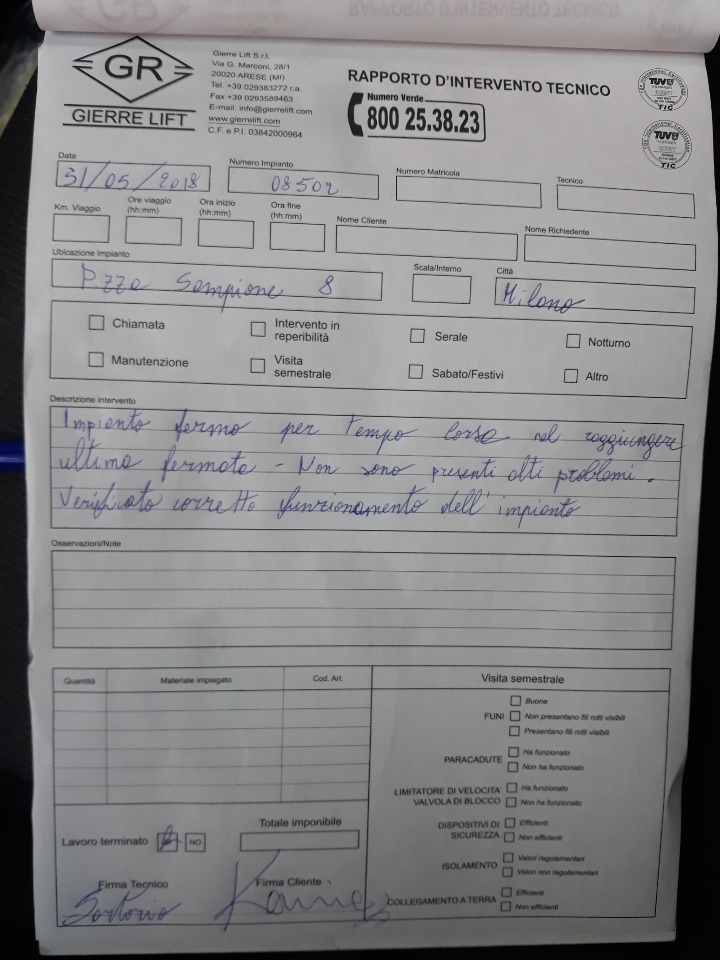 GR
GIERRE LIFT
Gierre Lift S.r.l.
Via G. Marconi, 28/1
20020 ARESE (MI)
Tel. +39 029383272 r.a.
Fax +39 0293589463
E-mail: info@gierrelift.com
www.gierrelift.com
C.F. e P.I. 03842000964
RAPPORTO D'INTERVENTO TECNICO
Numero Verde
800 25.38.23
TUV
TIC
TUV
TIC
Data
Numero Impianto
Numero Matricola
Tecnico
31/05/2018
08502
Km. Viaggio
Ore viaggio (hh:mm)
Ora inizio (hh:mm)
Ora fine (hh:mm)
Nome Cliente
Nome Richiedente
Ubicazione impianto
Scala/Interno
Città
Pzza Sempione 8
Milano
Chiamata
Intervento in reperibilità
Serale
Notturno
Manutenzione
Visita semestrale
Sabato/Festivi
Altro
Descrizione intervento
Impianto fermo per tempo corsa nel raggiungere
ultima fermata - Non sono presenti alti problemi.
Verificato corretto funzionamento dell'impianto
Osservazioni/Note
Quantità
Materiale impiegato
Cod. Art.
Visita semestrale
FUNI
Buone
Non presentano fili rotti visibili
Presentano fili rotti visibili
PARACADUTE
Ha funzionato
Non ha funzionato
LIMITATORE DI VELOCITA'
VALVOLA DI BLOCCO
Ha funzionato
Non ha funzionato
DISPOSITIVI DI SICUREZZA
Efficienti
Non efficienti
ISOLAMENTO
Valori regolamentari
Valori non regolamentari
COLLEGAMENTO A TERRA
Efficienti
Non efficienti
Lavoro terminato
NO
Totale imponibile
Firma Tecnico
Firma Cliente
Sartorio